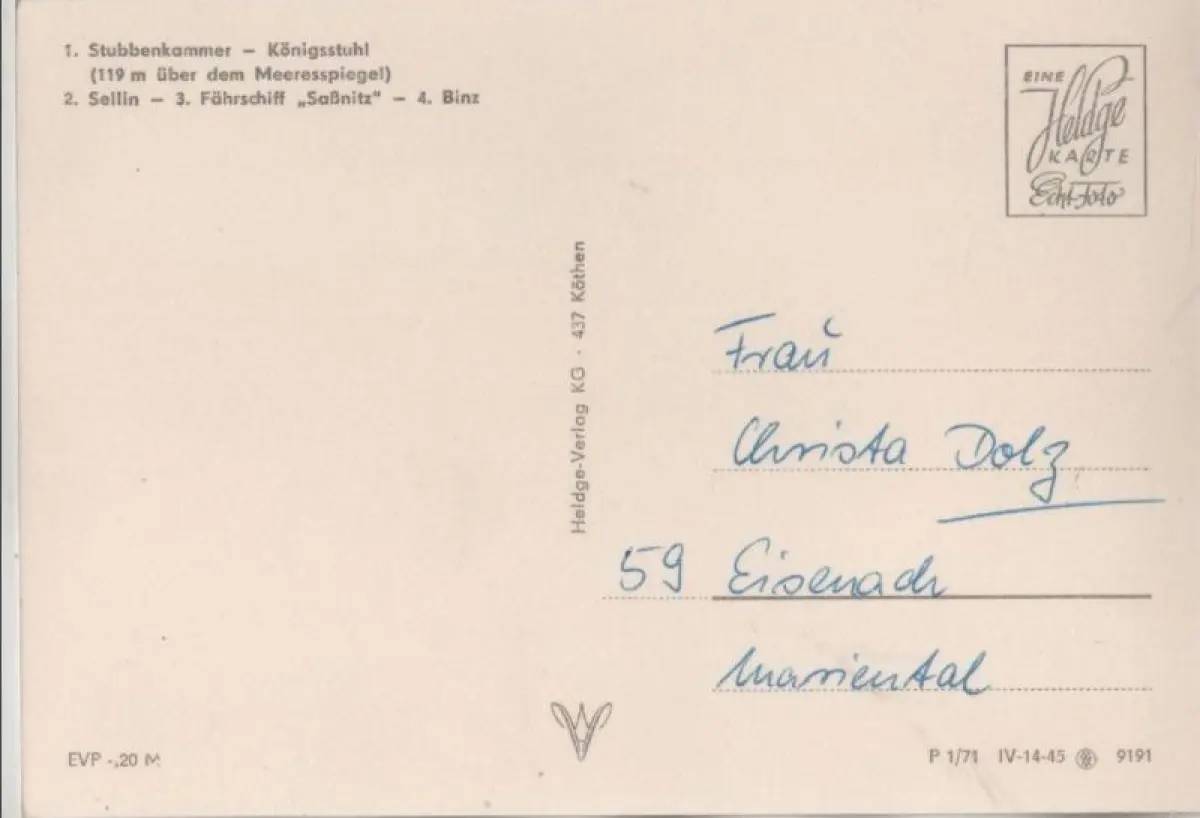 1. Stubbenkammer – Königsstuhl
(119 m über dem Meeresspiegel)
2. Sellin – 3. Fährschiff „Saßnitz“ – 4. Binz
EINE
Heldge
KARTE
Echt-Foto
Heldge-Verlag KG · 437 Köthen
Frau
Christa Dolz
59 Eisenach
Mariental
EVP -,20 M
P 1/71 IV-14-45 9191